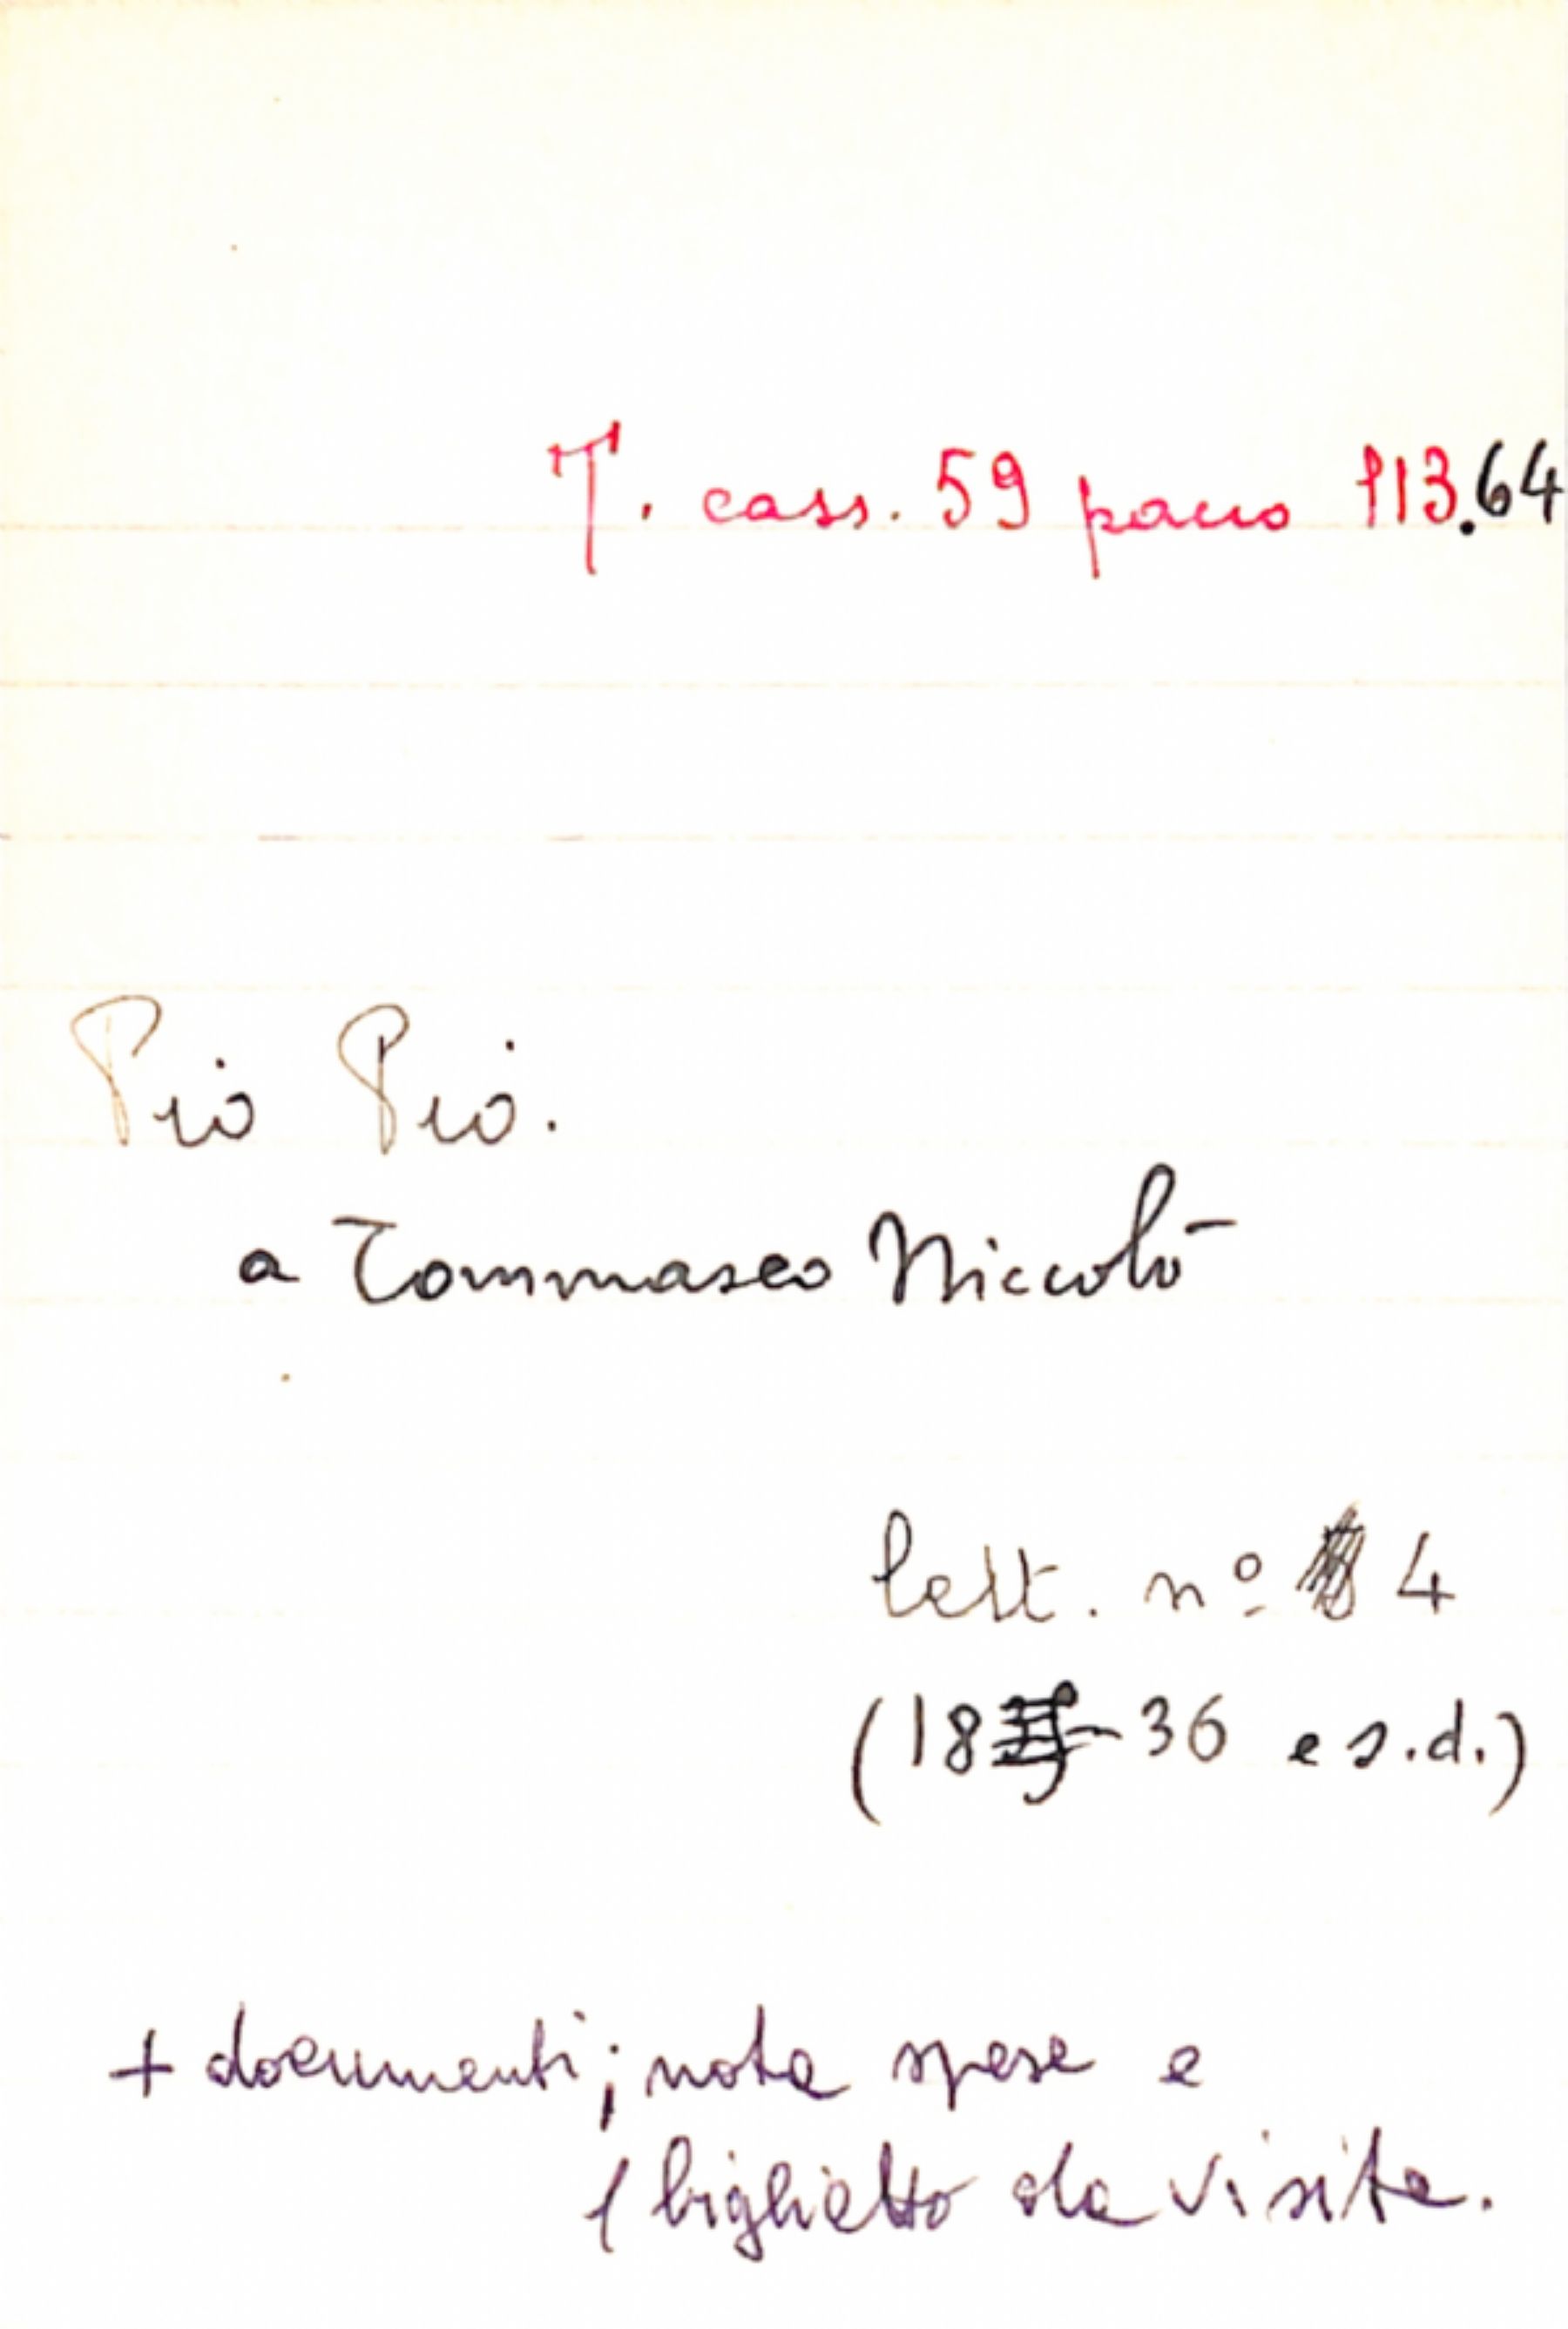 T. cass. 59 pacco 113.64
Pio Pio.
a Tommaseo Niccolò
lett. nº 4
(18 -36 e s.d.)
+ documenti; nota spese e
1 biglietto da visita.